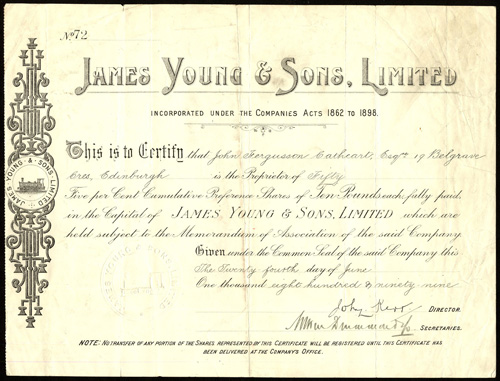 No 72
JAMES YOUNG & SONS, LIMITED
INCORPORATED UNDER THE COMPANIES ACTS 1862 TO 1898.
This is to Certify that John Fergusson Cathcart, Esqre 19 Belgrave
Cres, Edinburgh is the Proprietor of Fifty
Five per Cent Cumulative Preference Shares of Ten Pounds each, fully paid,
in the Capital of JAMES YOUNG & SONS, LIMITED which are
held subject to the Memorandum of Association of the said Company
Given under the Common Seal of the said Company this
The Twenty fourth day of June
One thousand eight hundred & ninety nine
John Kerr DIRECTOR.
Drummond SECRETARIES.
NOTE: NO TRANSFER OF ANY PORTION OF THE SHARES REPRESENTED BY THIS CERTIFICATE WILL BE REGISTERED UNTIL THIS CERTIFICATE HAS
BEEN DELIVERED AT THE COMPANY'S OFFICE.
JAMES YOUNG & SONS LIMITED